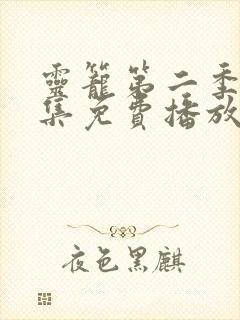 靈籠第二季
集免費播放
夜色黑麒